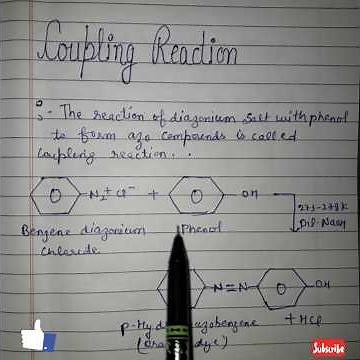 Coupling Reaction
:- The reaction of diazonium salt with phenol
to form azo compounds is called
coupling reaction..
N₂+Cl⁻ + OH
273-278K
Dil-NaOH
Benzene diazonium Phenol
chloride
N=N OH
+ HCl
azobenzene
dye)
Subscribe